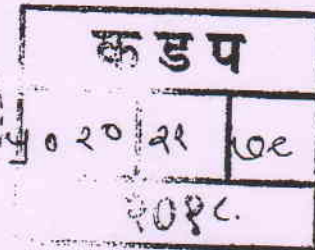 क ड प
५०२० २१ ७९
२०१८